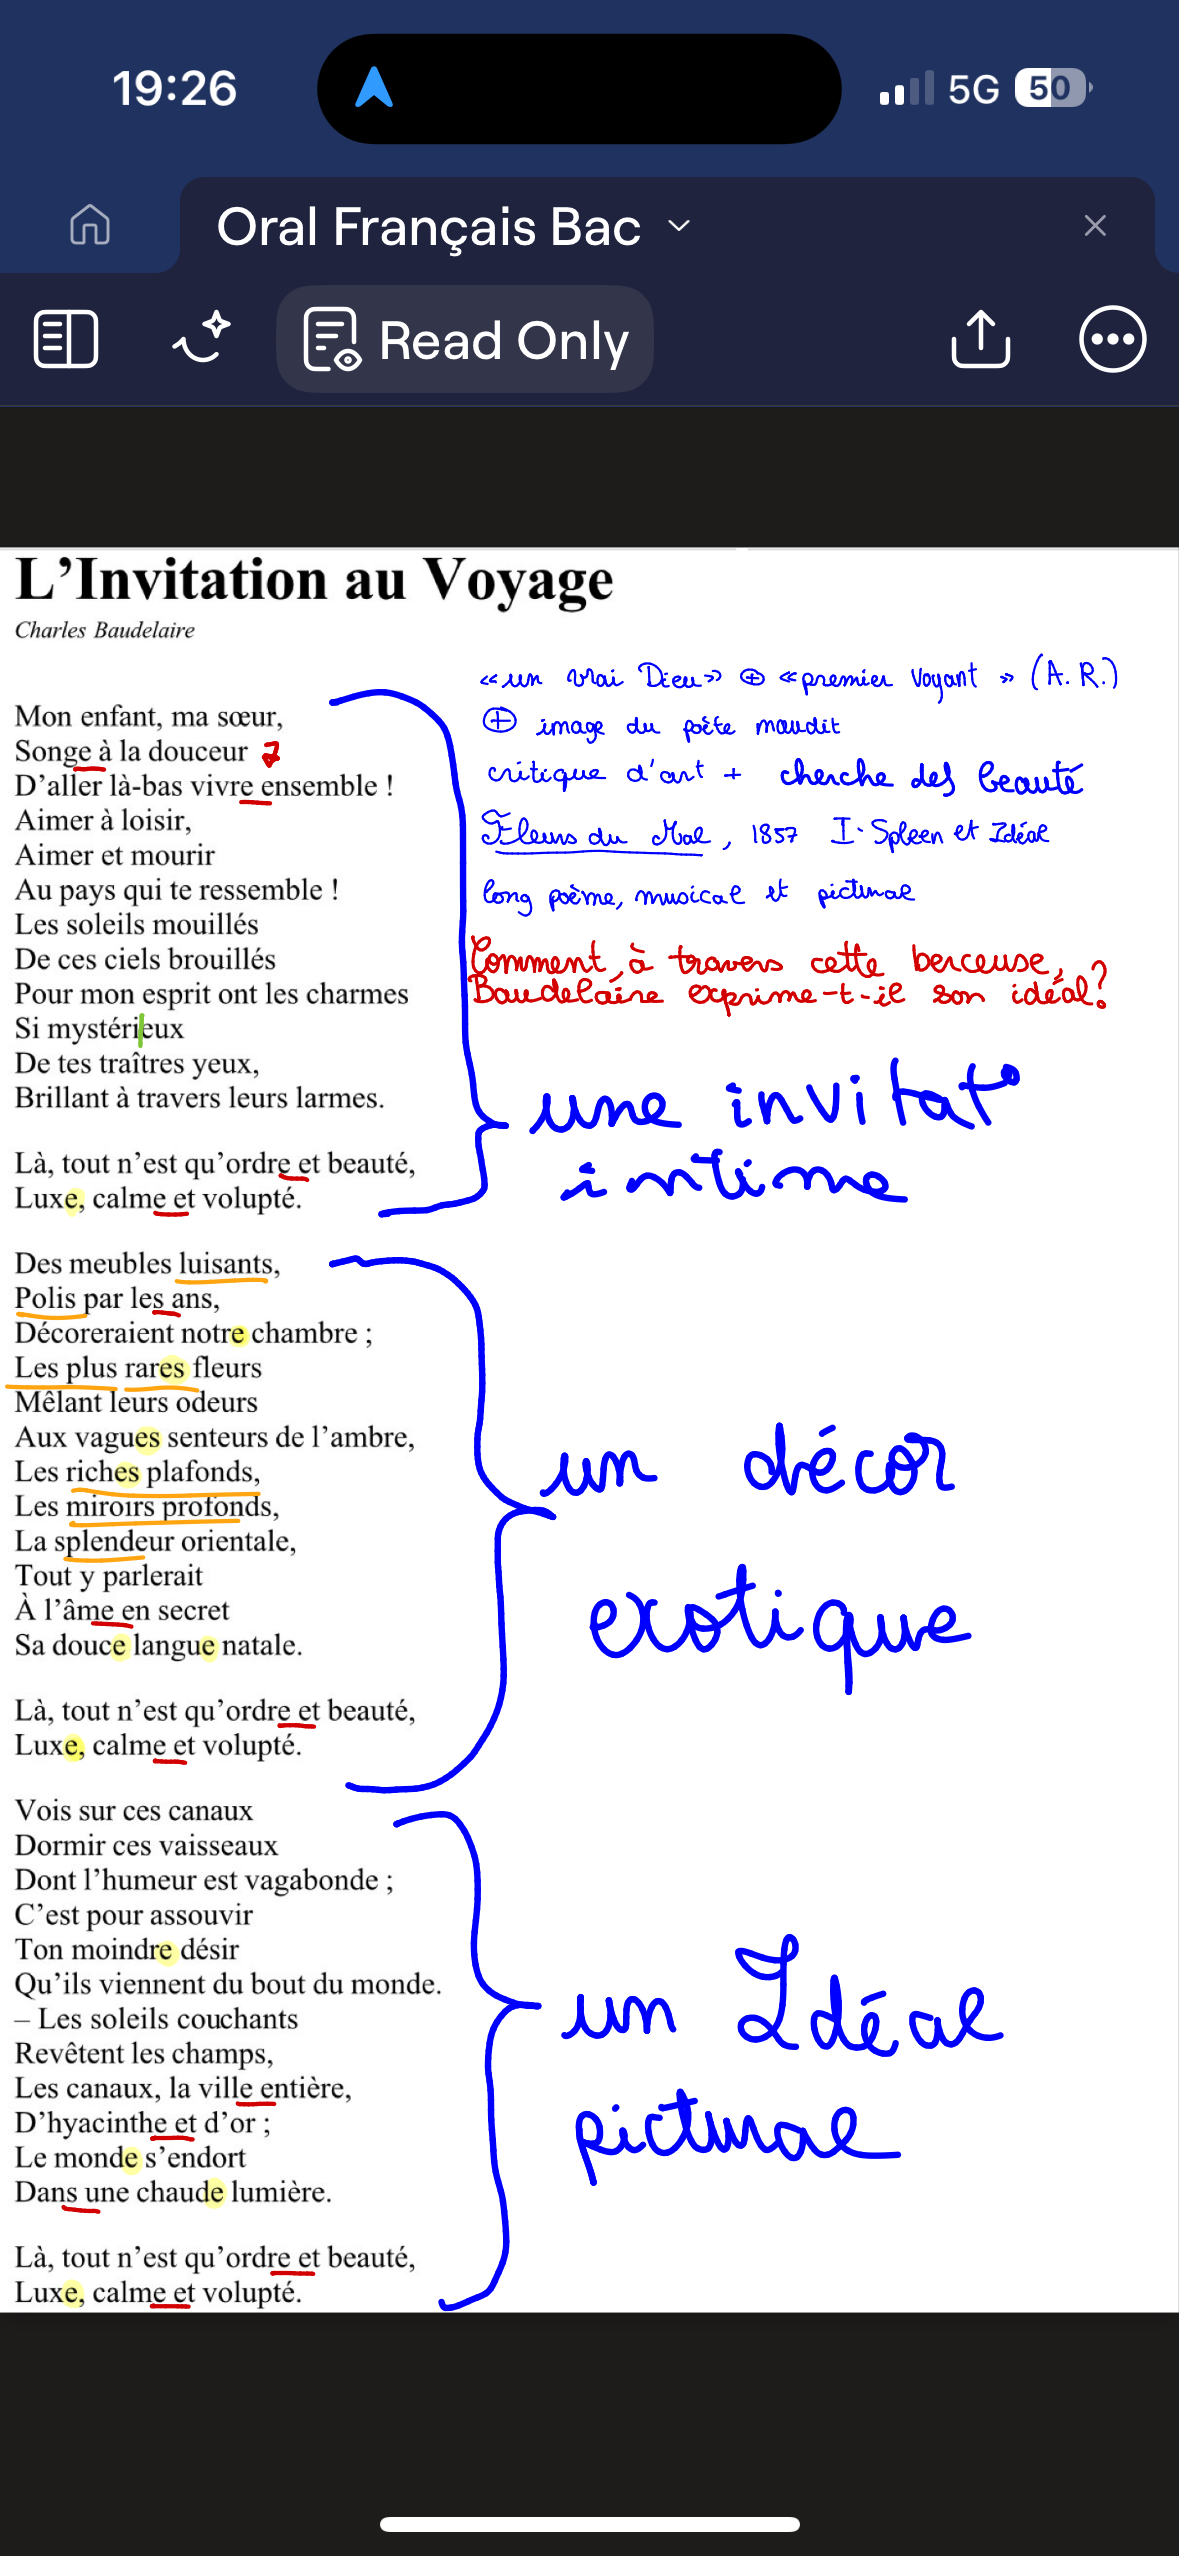 19:26
5G 50
Oral Français Bac
Read Only
L’Invitation au Voyage
Charles Baudelaire
« un vrai Dieu » ⊕ « premier Voyant » (A. R.)
⊕ image du poète maudit
critique d'art + cherche des beauté
Fleurs du Mal, 1857 I. Spleen et Idéal
long poème, musical et pictural
Comment, à travers cette berceuse,
Baudelaire exprime-t-il son idéal?
Mon enfant, ma sœur,
Songe à la douceur 7
D’aller là-bas vivre ensemble !
Aimer à loisir,
Aimer et mourir
Au pays qui te ressemble !
Les soleils mouillés
De ces ciels brouillés
Pour mon esprit ont les charmes
Si mystérieux
De tes traîtres yeux,
Brillant à travers leurs larmes.
Là, tout n’est qu’ordre et beauté,
Luxe, calme et volupté.
une invitat°
intime
Des meubles luisants,
Polis par les ans,
Décoreraient notre chambre ;
Les plus rares fleurs
Mêlant leurs odeurs
Aux vagues senteurs de l’ambre,
Les riches plafonds,
Les miroirs profonds,
La splendeur orientale,
Tout y parlerait
À l’âme en secret
Sa douce langue natale.
Là, tout n’est qu’ordre et beauté,
Luxe, calme et volupté.
un décor
exotique
Vois sur ces canaux
Dormir ces vaisseaux
Dont l’humeur est vagabonde ;
C’est pour assouvir
Ton moindre désir
Qu’ils viennent du bout du monde.
– Les soleils couchants
Revêtent les champs,
Les canaux, la ville entière,
D’hyacinthe et d’or ;
Le monde s’endort
Dans une chaude lumière.
Là, tout n’est qu’ordre et beauté,
Luxe, calme et volupté.
un Idéal
pictural